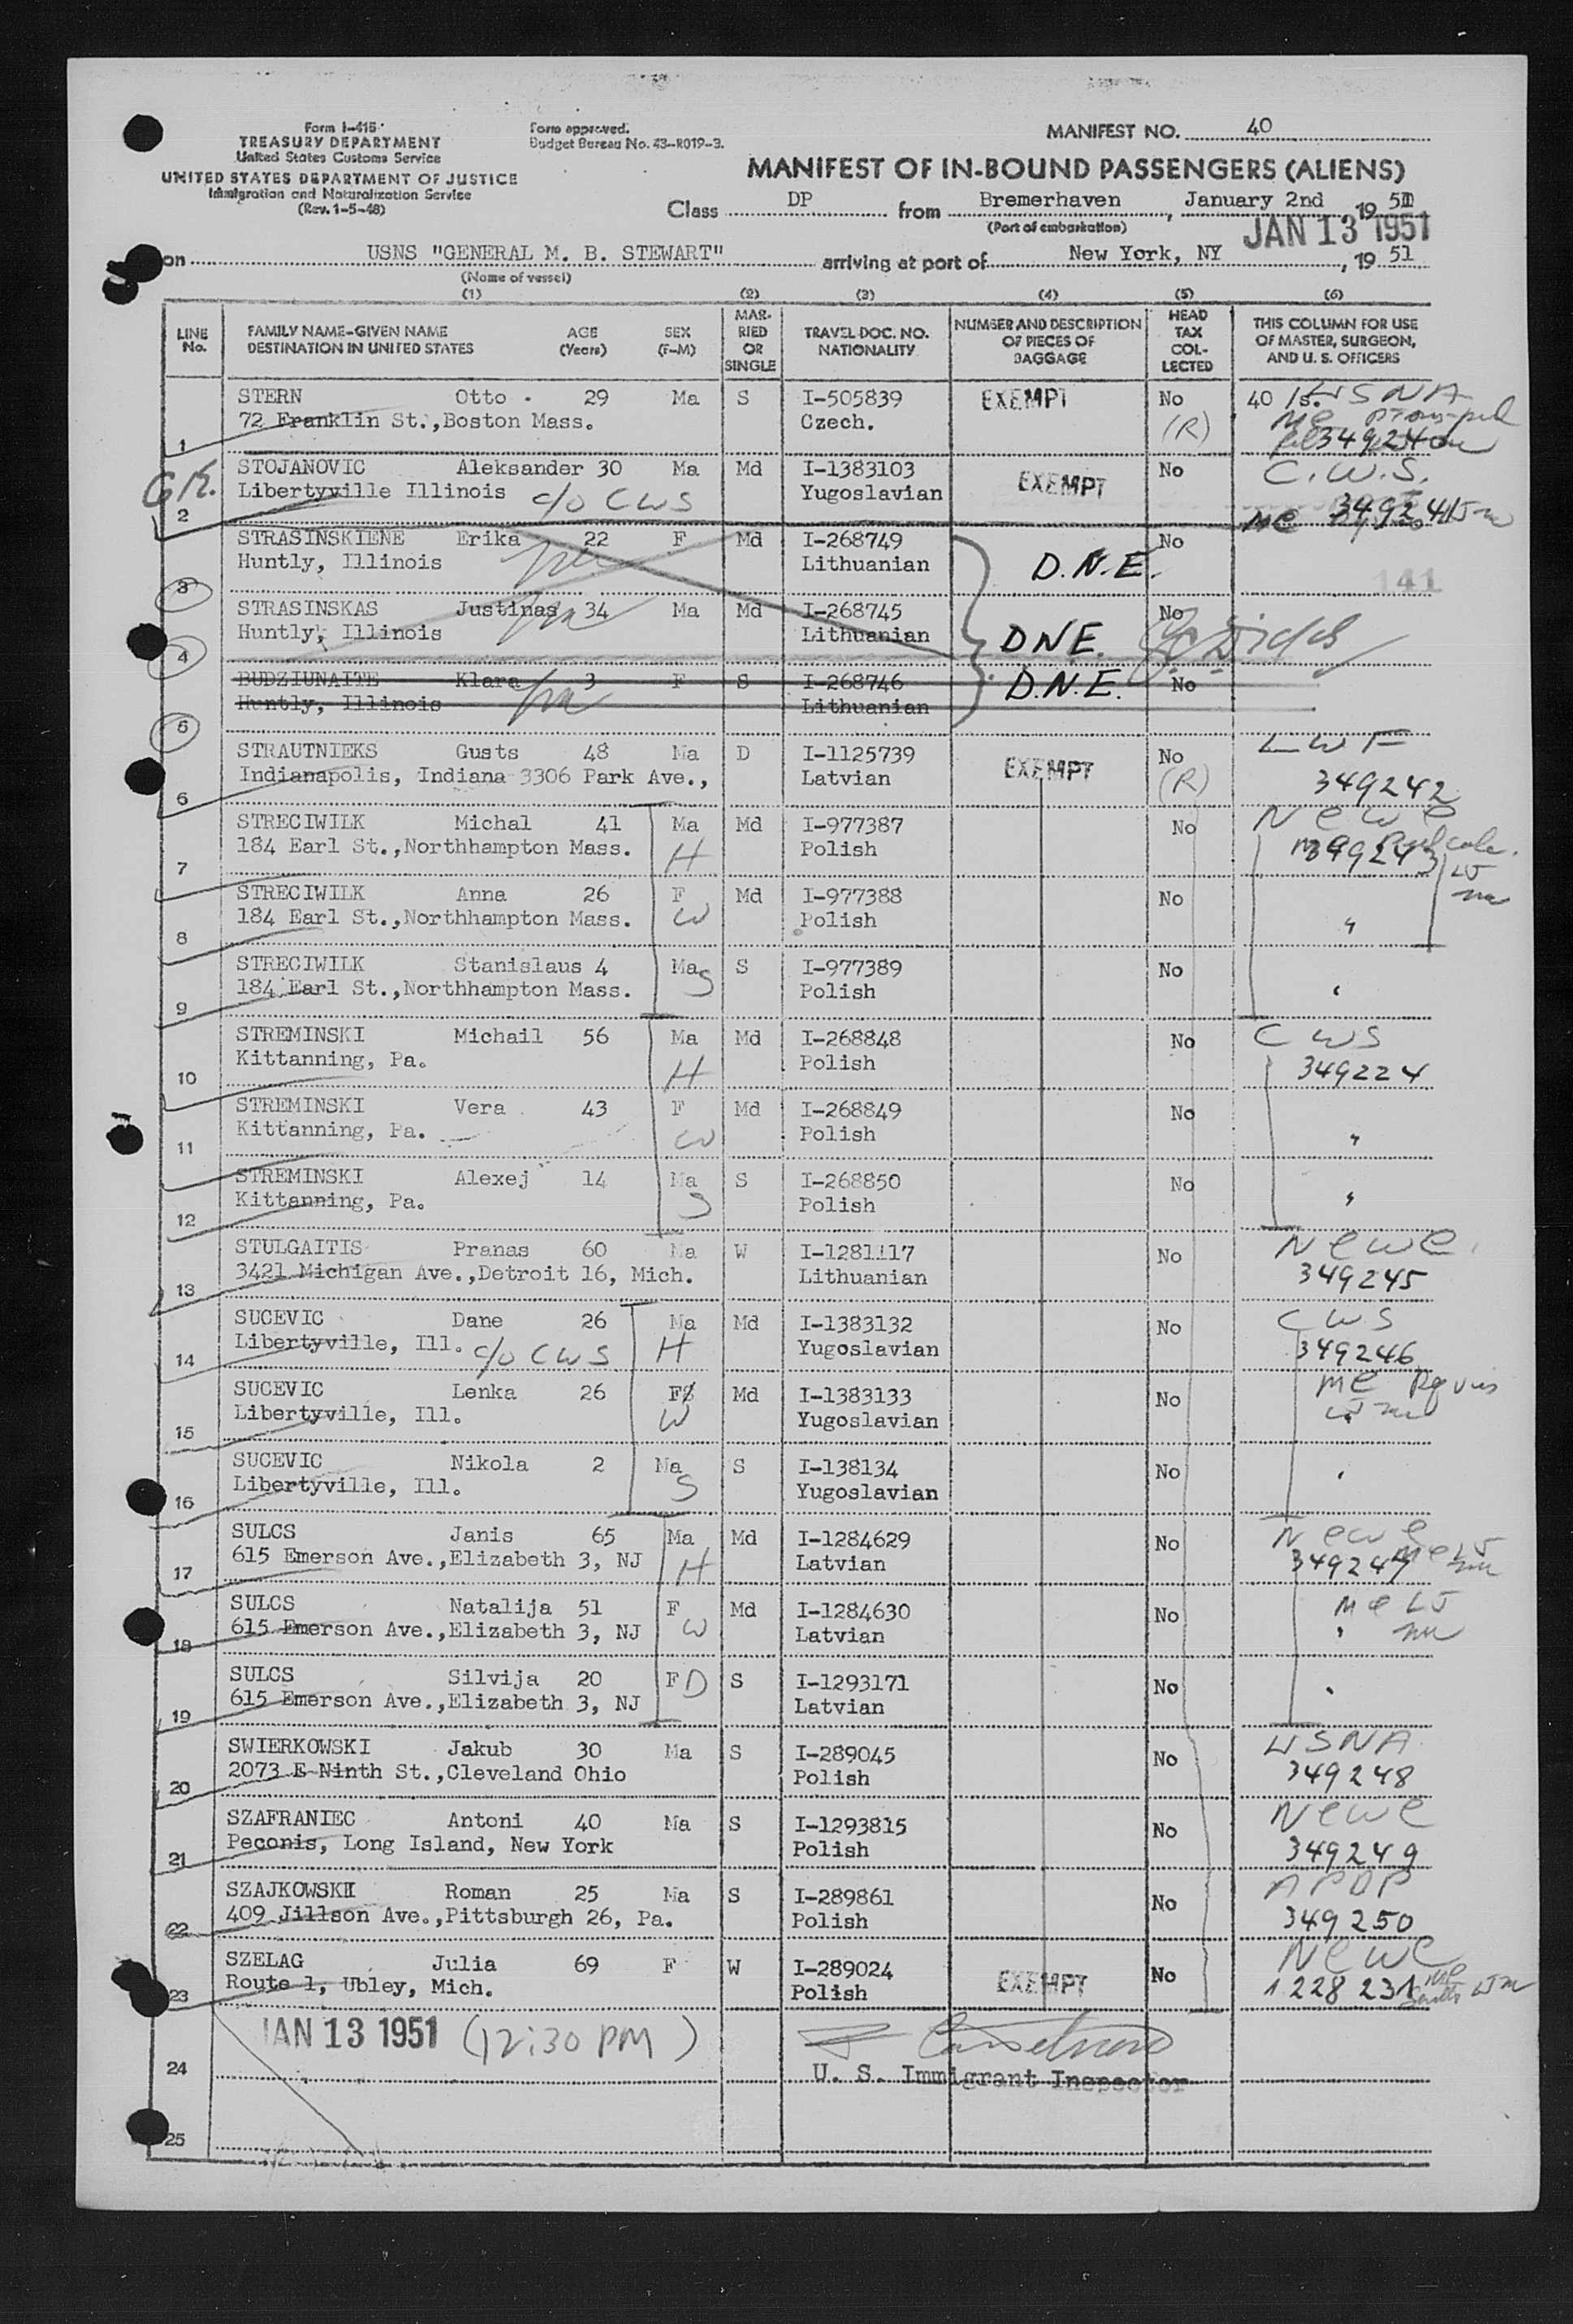 Form I-415
TREASURY DEPARTMENT
United States Customs Service
UNITED STATES DEPARTMENT OF JUSTICE
Immigration and Naturalization Service
(Rev. 1-5-48)
Form approved.
Budget Bureau No. 43-R019-3.
MANIFEST NO. 40
MANIFEST OF IN-BOUND PASSENGERS (ALIENS)
Class DP from Bremerhaven, January 2nd, 19 51
(Port of embarkation)
JAN 13 1951
on USNS "GENERAL M. B. STEWART" arriving at port of New York, NY, 19 51
(Name of vessel)
(1) (2) (3) (4) (5) (6)
LINE No. FAMILY NAME-GIVEN NAME DESTINATION IN UNITED STATES AGE (Years) SEX (F-M) MARRIED OR SINGLE TRAVEL DOC. NO. NATIONALITY NUMBER AND DESCRIPTION OF PIECES OF BAGGAGE HEAD TAX COLLECTED THIS COLUMN FOR USE OF MASTER, SURGEON, AND U. S. OFFICERS
STERN Otto 29 Ma S I-505839 EXEMPT No 40 Is. USNA
1 72 Franklin St.,Boston Mass. Czech. (R)
GR. STOJANOVIC Aleksander 30 Ma Md I-1383103 EXEMPT No C.W.S.
2 Libertyville Illinois c/o CWS Yugoslavian Me
STRASINSKIENE Erika 22 F Md I-268749 D.N.E. No
3 Huntly, Illinois Lithuanian 141
STRASINSKAS Justinas 34 Ma Md I-268745 DNE. No
4 Huntly, Illinois Lithuanian
BUDZIUNAITE Klara 3 F S I-268746 D.N.E. No
5 Huntly, Illinois Lithuanian
STRAUTNIEKS Gusts 48 Ma D I-1125739 EXEMPT No LWF
6 Indianapolis, Indiana 3306 Park Ave., Latvian (R) 349242
STRECIWILK Michal 41 Ma Md I-977387 No Newc
7 184 Earl St.,Northhampton Mass. H Polish 349243
STRECIWILK Anna 26 F Md I-977388 No
8 184 Earl St.,Northhampton Mass. W Polish "
STRECIWILK Stanislaus 4 Ma S I-977389 No
9 184 Earl St.,Northhampton Mass. S Polish "
STREMINSKI Michail 56 Ma Md I-268848 No CWS
10 Kittanning, Pa. H Polish 349224
STREMINSKI Vera 43 F Md I-268849 No
11 Kittanning, Pa. W Polish "
STREMINSKI Alexej 14 Ma S I-268850 No
12 Kittanning, Pa. S Polish "
STULGAITIS Pranas 60 Ma W I-1281117 No Newc
13 3421 Michigan Ave.,Detroit 16, Mich. Lithuanian 349245
SUCEVIC Dane 26 Ma Md I-1383132 No CWS
14 Libertyville, Ill. c/o CWS H Yugoslavian 349246
SUCEVIC Lenka 26 F Md I-1383133 No Me
15 Libertyville, Ill. W Yugoslavian
SUCEVIC Nikola 2 Ma S I-138134 No
16 Libertyville, Ill. S Yugoslavian "
SULCS Janis 65 Ma Md I-1284629 No Newc
17 615 Emerson Ave.,Elizabeth 3, NJ H Latvian 349247
SULCS Natalija 51 F Md I-1284630 No Me
18 615 Emerson Ave.,Elizabeth 3, NJ W Latvian "
SULCS Silvija 20 F D S I-1293171 No
19 615 Emerson Ave.,Elizabeth 3, NJ Latvian "
SWIERKOWSKI Jakub 30 Ma S I-289045 No USNA
20 2073 E Ninth St.,Cleveland Ohio Polish 349248
SZAFRANIEC Antoni 40 Ma S I-1293815 No Newc
21 Peconis, Long Island, New York Polish 349249
SZAJKOWSKI Roman 25 Ma S I-289861 No APDP
22 409 Jillson Ave.,Pittsburgh 26, Pa. Polish 349250
SZELAG Julia 69 F W I-289024 EXEMPT No Newc
23 Route 1, Ubley, Mich. Polish 1228231
JAN 13 1951 (12:30 PM)
24 U. S. Immigrant Inspector
25